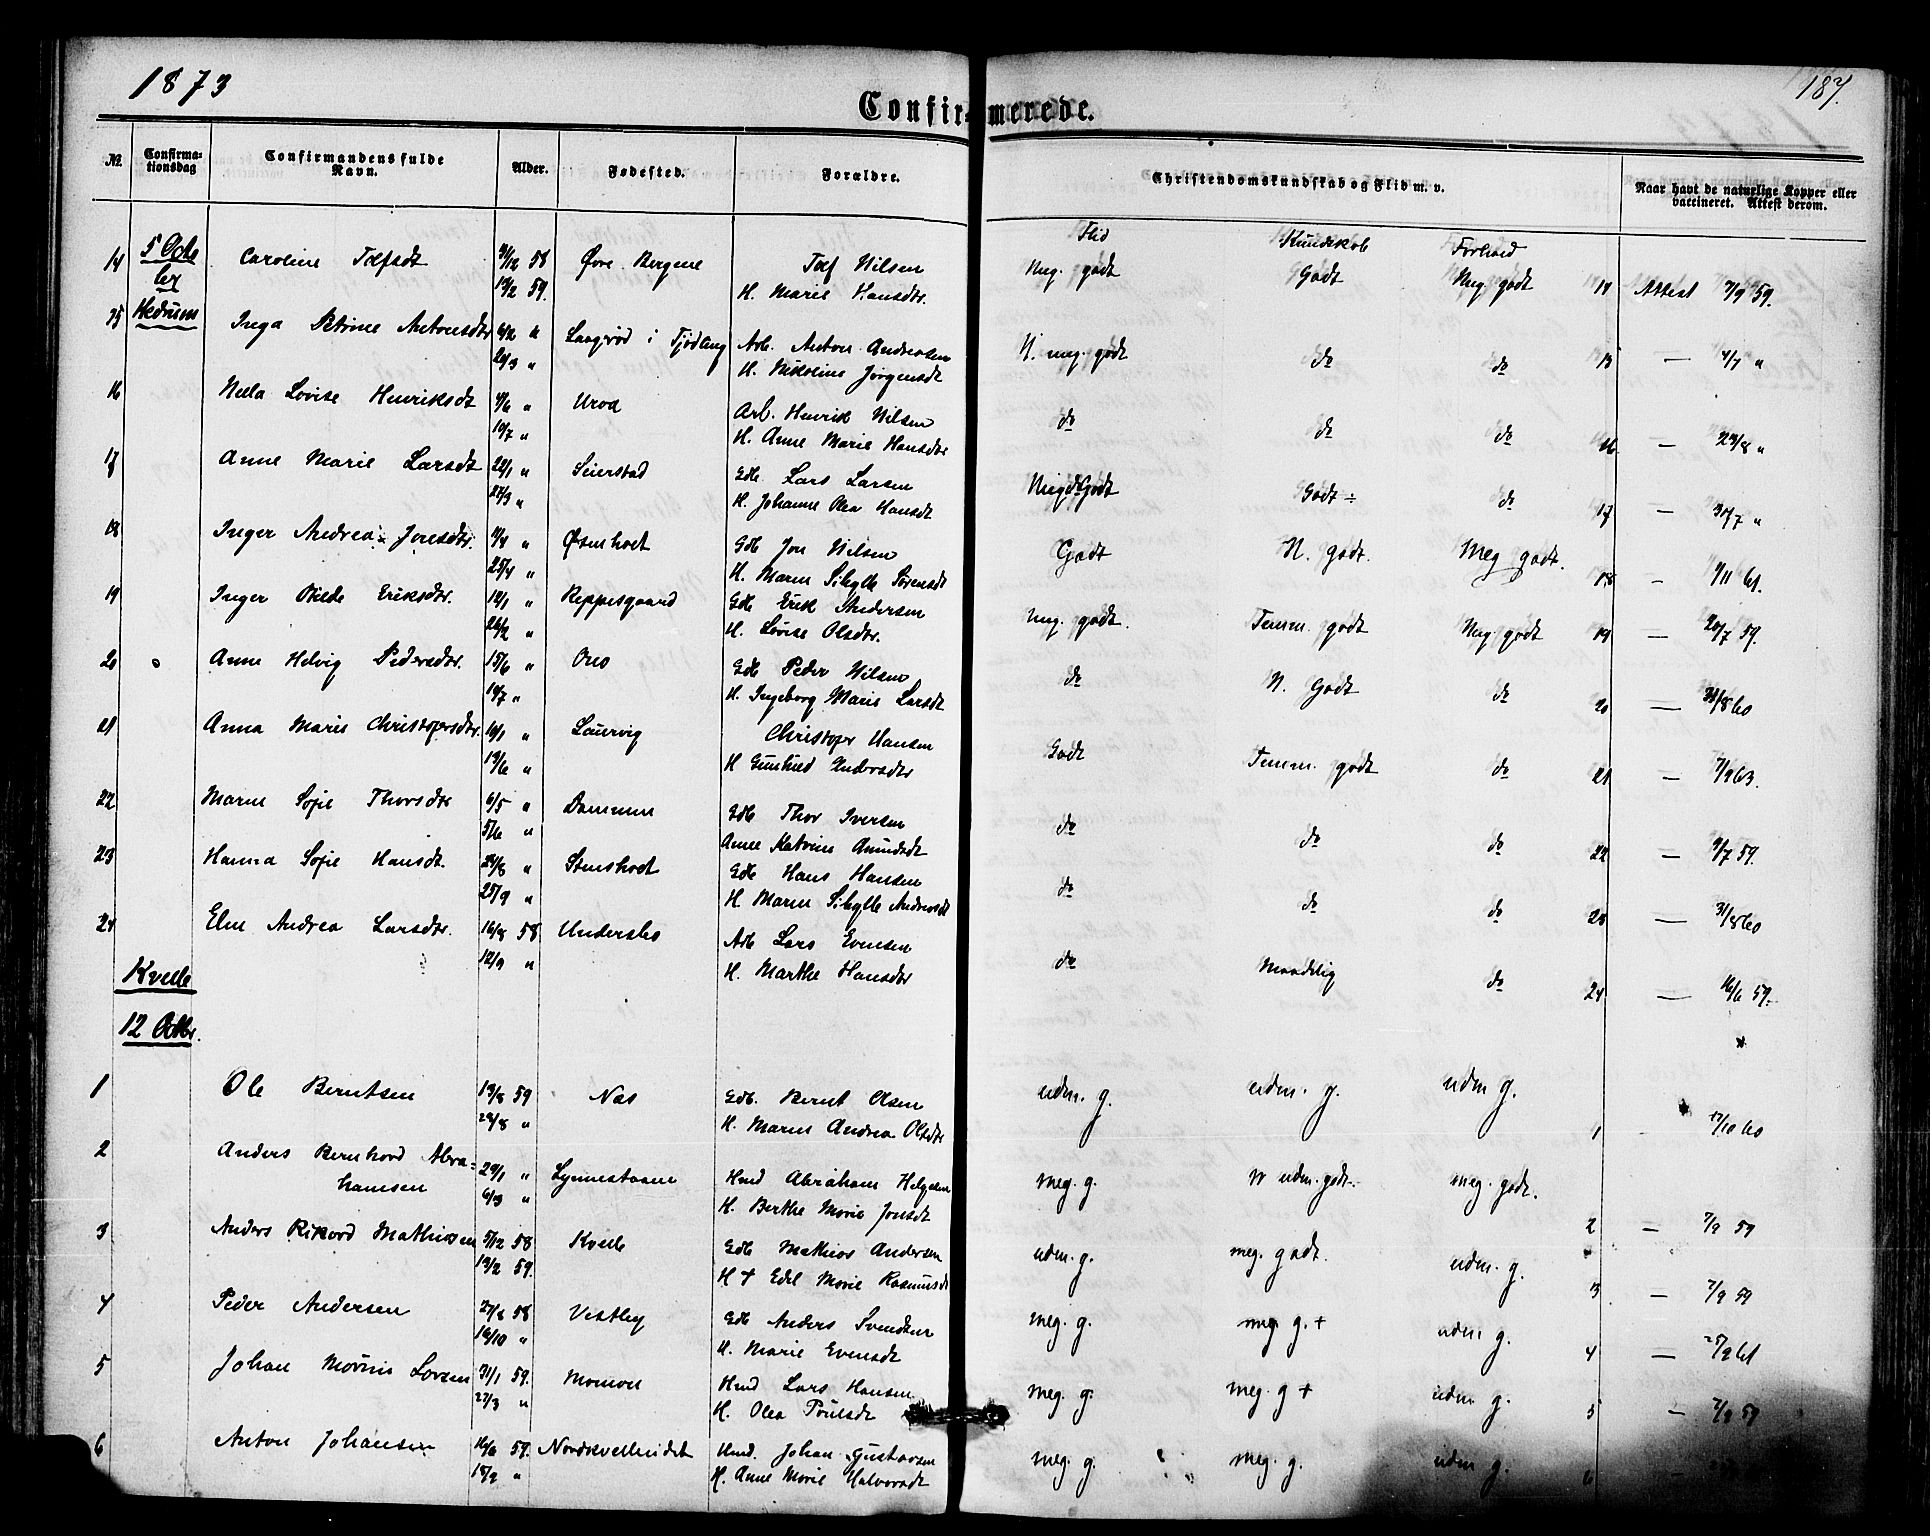 1873
187.
Confirmerede.
No. Confirmationsdag Confirmandens fulde Navn. Alder. Fødested. Forældre. Christendomskundskab og Flid m. v. Naar havt de naturlige Kopper eller vaccineret. Attest derom.
Flid Kundskab Forhold
5 Octbr
Hedrum
14 Caroline 58 Øvre Bergene Nilsen Meg. godt Godt Meg godt Attest 7/9 59.
19/2 59. H. Marie Hansdtr.
15 Inga Petrine Antonsdtr 6/2 " i Tjødling Arb. Anton Andreasen N. meg. godt do do 15 — 4/7 "
20/3 " H. Nikoline Jørgensdt
16 Lovise Henriksdt 4/6 " Arb. Henrik Nilsen do do do 16 — 29/8 "
10/7 " H. Anne Marie Hansdtr
17 Anne Marie Larsdt 22/1 " Seierstad Gdb Lars Larsen Meg. Godt Godt ÷ do 17 — "
27/3 " H. Johanne Olea Hansdt
18 Inger Andrea Jonsdtr. " Østenholt Gdb Jon Nilsen Godt N. godt. Meg godt. 18 – 9/11 61.
25/4 " H. Maren Sibylle Sørensdt
19 Inger Eriksdtr. 12/1 " Reppesgaard Gdb Erik Andersen meg. godt. Temm. godt Meg. godt 19 — 20/7 59.
26/2 " H. Lovise Olsdtr.
20 Anne Helvig Pedersdtr. 15/6 " Gdb Peder Nilsen do N. Godt do 20 — 31/8 60
10/7 " H. Ingeborg Marie Larsdt
21 Anna Marie Christophersdtr. 16/1 " Laurvig Christopher Hansen Godt Temm. godt do 21 — 7/9 63.
19/6 " H Gunhild Andersdtr
22 Maren Sofie Thorsdtr 6/5 " Dammen Gdb Thor Iversen do do do 22 — 9/7 59.
5/6 " Anne Katrine Amundsdt
23 Hanna Sofie Hansdt. 24/8 " Stensholt Gdb Hans Hansen do do do 23 — 31/8 60
25/9 " H. Maren Sibylle Andersdt
24 Elen Andrea Larsdtr. 16/8 58 Undersbo Arb Lars Evensen do Maadelig do 24 — 16/6 59.
12/9 " H. Marthe Hansdtr
Kvelle
12 Octbr.
1 Ole Berntsen 19/8 59 Næs Gdb. Bernt Olsen udm. g. udm. g. udm g. 1 17/10 60
28/8 " H. Maren Andrea Olsdtr
2 Anders Bernhard Abra- 29/1 " Hmd Abraham Helgesen meg. g. N udm. godt. meg. godt. 2 — 7/9 59
hamsen 6/3 " H. Berthe Marie Jonsdt
3 Anders Rikard Mathissen 5/12 58 Kvelle Gdb Mathias Andersen udm. g. meg. godt. udm. g. 3 — 7/9 59
19/2 59. H + Edel Marie Rasmusdt
4 Peder Andersen 27/8 58 Vestby Gdb Anders Svendsen meg. g. meg g. + udm g. 4 — 25/9 61
16/10 " H. Marie Evensdt
5 Johan Larsen 31/1 59. Momoen Hmd Lars Hansen meg. g. meg. g + udm g. 5 — 7/9 59
27/3 " H. Olea Poulsdt
6 Anton Johansen 16/6 59. Hmd. Johan Gustavsen meg. g meg. g. udm g. 6
18/9 " H. Anne Marie Halvorsdt